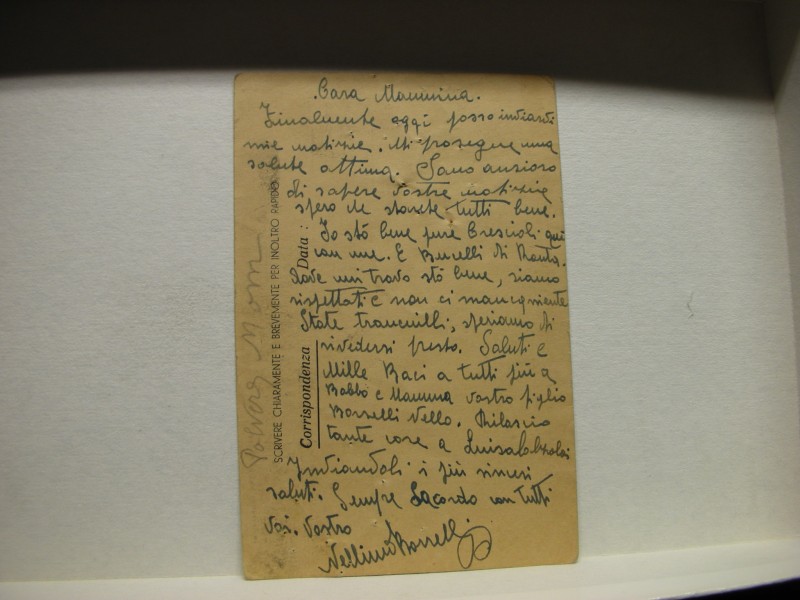 Cara Mammina.
Finalmente oggi posso indiarti
mie notizie. Mi prosegue una
salute ottima. Sono ansioso
di sapere vostre notizie
spero che starete tutti bene.
Io stò bene pure Crescioli qui
con me. E Burelli di Ronta.
Dove mi trovo stò bene, siamo
rispettati e non ci manca niente
State tranquilli, speriamo di
rivederci presto. Saluti e
Mille Baci a tutti più a
Babbo e Mamma vostro figlio
Borselli Nello. Rilascio
tante cose a
Indiandoli i più sinceri
saluti. Sempre con tutti
voi. Vostro
Nellino Borselli
Corrispondenza Data :
SCRIVERE CHIARAMENTE E BREVEMENTE PER INOLTRO RAPIDO
Mom